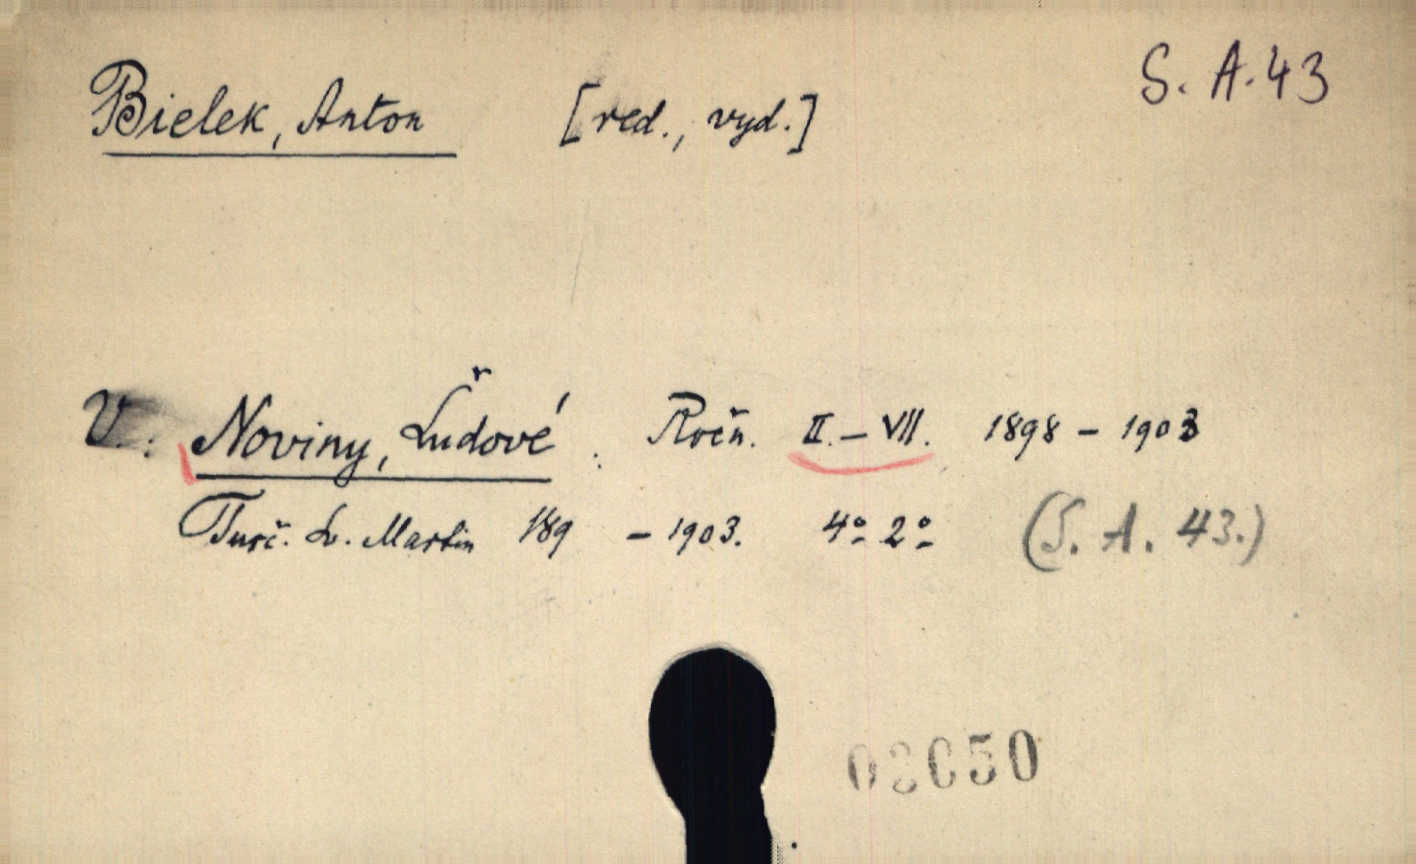 S. A. 43
Bielek, Anton [red., vyd.]
V. : Noviny, Ľudové. Ročn. II. – VII. 1898 – 1903
Turč. Sv. Martin 189 – 1903. 4° 2° (S. A. 43.)